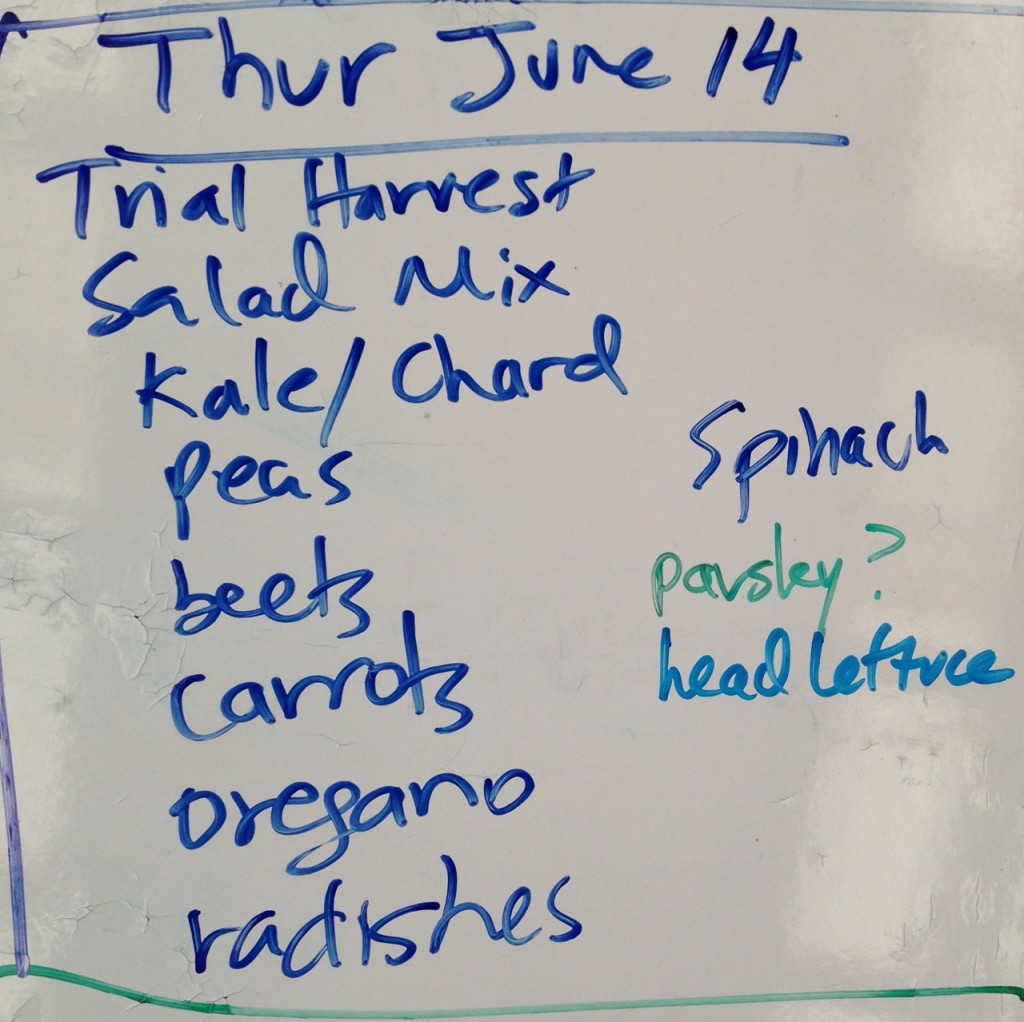 Thur June 14
Trial Harvest
Salad Mix
Kale/Chard
peas
beets
carrots
oregano
radishes
Spinach
parsley?
head lettuce